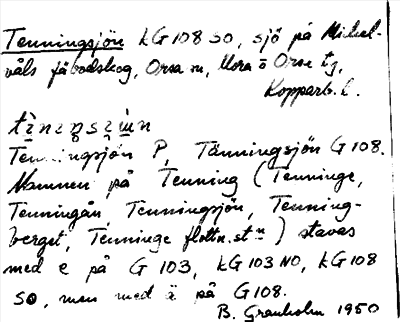 Tenningsjön LG 108 SO, sjö på Mickel-
våls fäbodskog, Orsa sn, Mora o Orsa tg,
Kopparb. l.
Tenningsjön P, Tänningsjön G 108.
Namnen på Tenning (Tenninge,
Tenningån, Tenningsjön, Tenning-
berget, Tenninge flottn. stn) stavas
med e på G 103, LG 103 NO, LG 108
SO, men med ä på G 108.
B. Granholm 1950